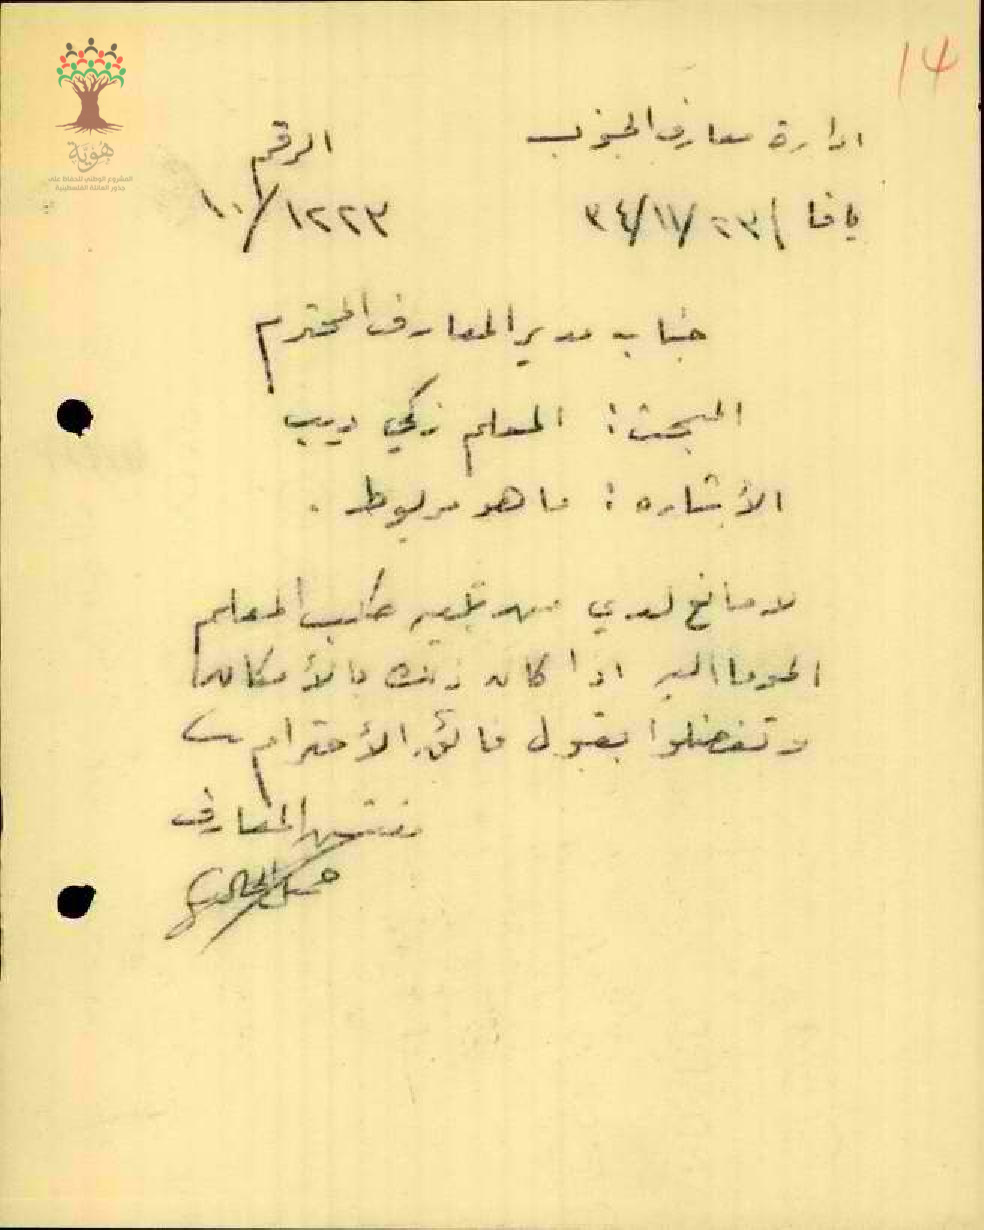 14
هوية
المشروع الوطني للحفاظ على
جذور العائلة الفلسطينية
ادارة معارف الجنوب الرقم
يافا ٣٤/١١/٢٣ ١٠/١٢٢٣
جناب مدير المعارف المحترم
المبحث : المعلم زكي ديب
الأشاره : ما هو مربوط .
لا مانع لدي من تلبية طلب المعلم
الموما اليه اذا كان ذلك بالأمكان
وتفضلوا بقبول فائق الأحترام
مفتش المعارف